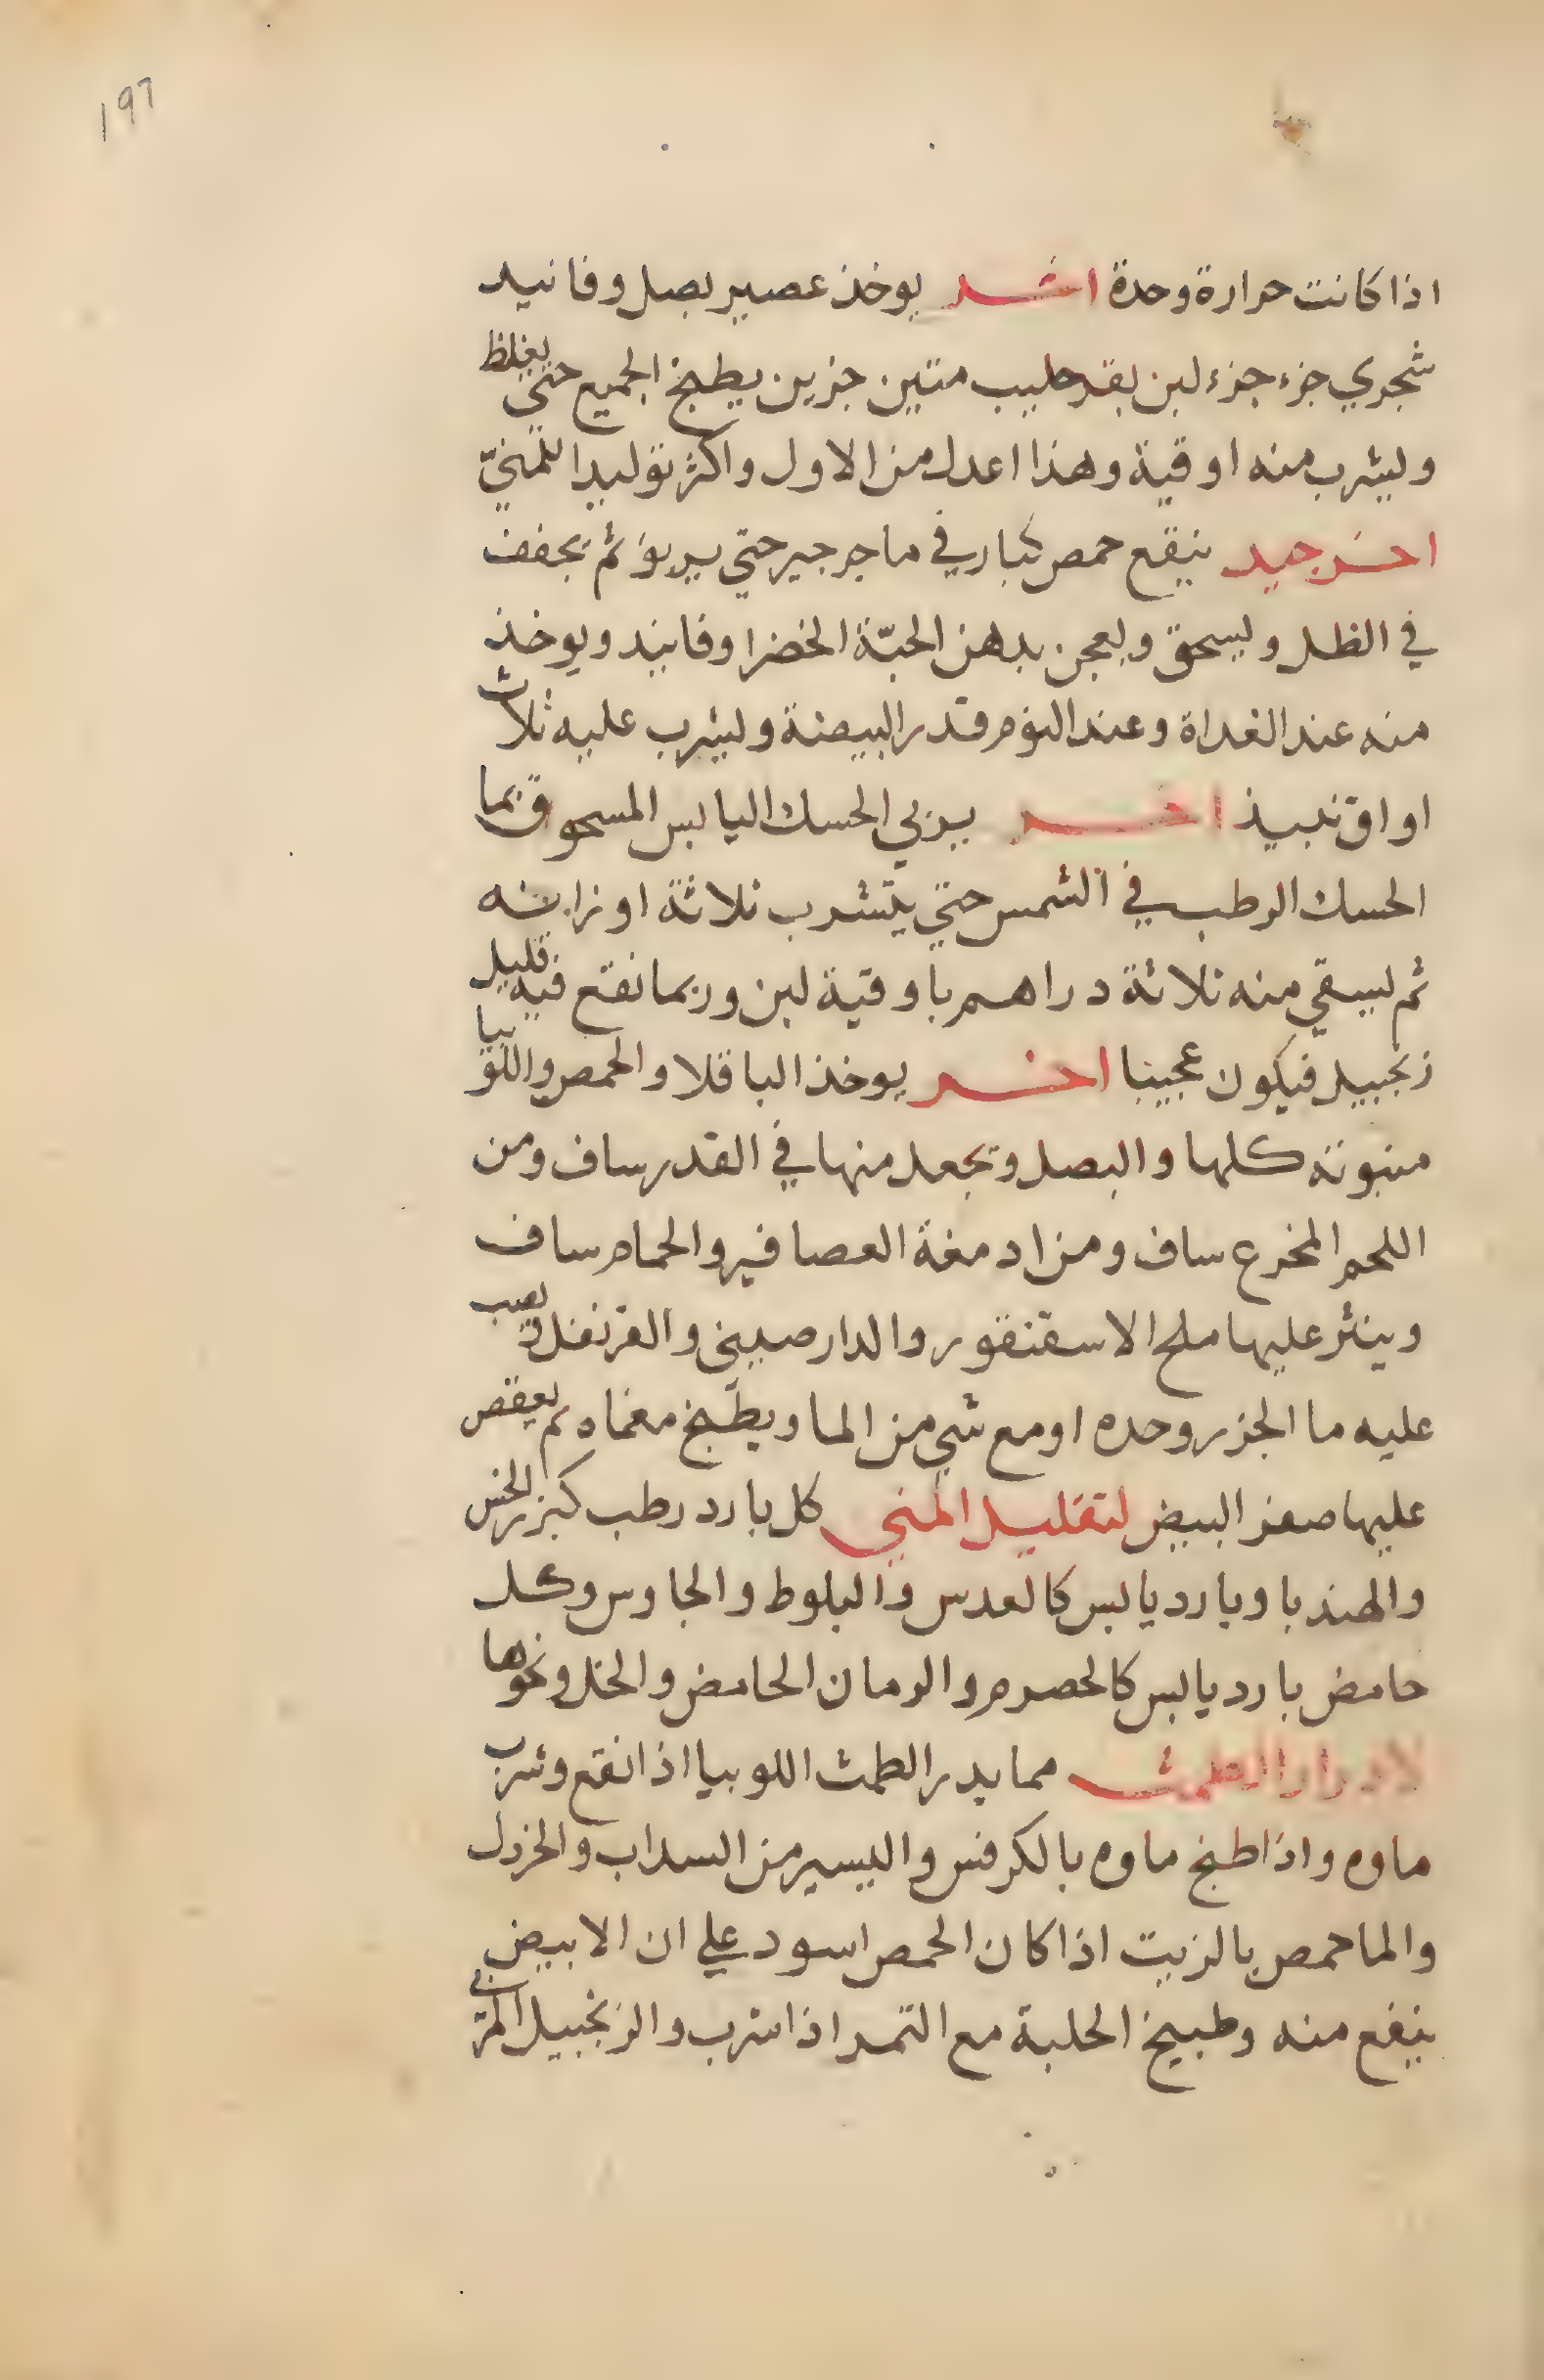 ١٩٦
اذا كانت حرارة وحدة اخر يوخذ عصير بصل وفانيد
شجري جزء جزء لبن بقر حليب متين جزين يطبخ الجميع حتي يغلظ
ويشرب منه اوقية وهذا اعدل من الاول واكثر توليدا للمنيّ
اخر جيد ينقع حمص كبار في ما جرجير حتي يربو ثم يجفف
في الظل ويسحق ويعجن بدهن الحبّة الخضرا وفانيد ويوخذ
منه عند الغداة وعند النوم قدر البيضة ويشرب عليه ثلاث
اواق نبيذ اخر يربي الحسك اليابس المسحوق بما
الحسك الرطب في الشمس حتي يتشرب ثلاثة اوزانه
ثم يسقي منه ثلاثة دراهم باوقية لبن وربما نقع فيه قليل
زنجبيل فيكون عجيبا اخر يوخذ الباقلا والحمص واللوبيا
منبوته كلها والبصل وتجعل منها في القدر ساف ومن
اللحم المخرع ساف ومن ادمغة العصافير والحمام ساف
وينثر عليها ملح الاسقنقور والدارصيني والقرنفل ويصب
عليه ما الجزر وحده او مع شي من الما ويطبخ مغماه ثم يفقص
عليها صفر البيض لتقليل المني كل بارد رطب كبزر الخس
والهندبا وبارد يابس كالعدس والبلوط والجاوس وكل
حامض بارد يابس كالحصرم والرمان الحامض والخل ونحوها
لادرار الطمث مما يدر الطمث اللوبيا اذا نقع وشرب
ماوه واذا طبخ ماوه بالكرفس واليسير من السداب والخردل
والما حمص بالزيت اذا كان الحمص اسود علي ان الابيض
ينفع منه وطبيخ الحلبة مع التمر اذا شرب والزنجبيل المربي